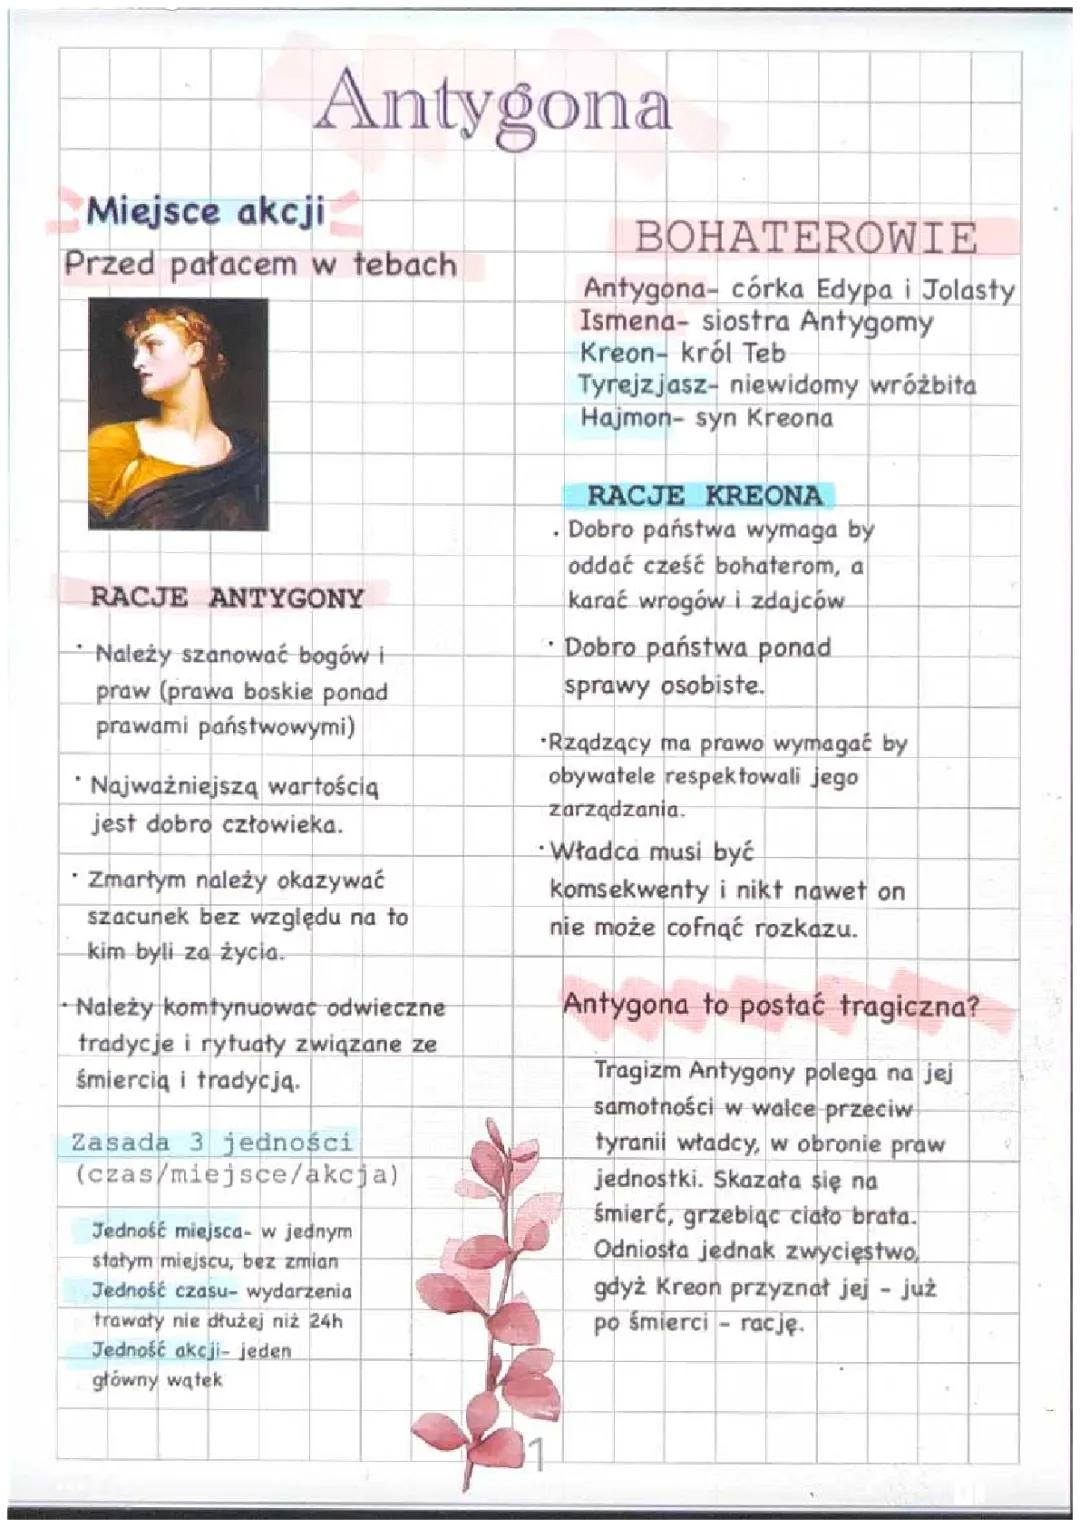 Antygona
Miejsce akcji
Przed pałacem w tebach
RACJE ANTYGONY
· Należy szanować bogów i
praw (prawa boskie ponad
prawami państwowymi)
· Najważniejszą wartością
jest dobro człowieka.
· Zmarłym należy okazywać
szacunek bez względu na to
kim byli za życia.
· Należy komtynuowac odwieczne
tradycje i rytuały związane ze
śmiercią i tradycją.
Zasada 3 jedności
(czas/miejsce/akcja)
Jedność miejsca- w jednym
stałym miejscu, bez zmian
Jedność czasu- wydarzenia
trawały nie dłużej niż 24h
Jedność akcji- jeden
główny wątek
BOHATEROWIE
Antygona- córka Edypa i Jolasty
Ismena- siostra Antygomy
Kreon- król Teb
Tyrejzjasz- niewidomy wróżbita
Hajmon- syn Kreona
RACJE KREONA
. Dobro państwa wymaga by
oddać cześć bohaterom, a
karać wrogów i zdajców
· Dobro państwa ponad
sprawy osobiste.
·Rządzący ma prawo wymagać by
obywatele respektowali jego
zarządzania.
·Władca musi być
komsekwenty i nikt nawet on
nie może cofnąć rozkazu.
Antygona to postać tragiczna?
Tragizm Antygony polega na jej
samotności w walce przeciw
tyranii władcy, w obronie praw
jednostki. Skazała się na
śmierć, grzebiąc ciało brata.
Odniosła jednak zwycięstwo,
gdyż Kreon przyznał jej - już
po śmierci - rację.
1